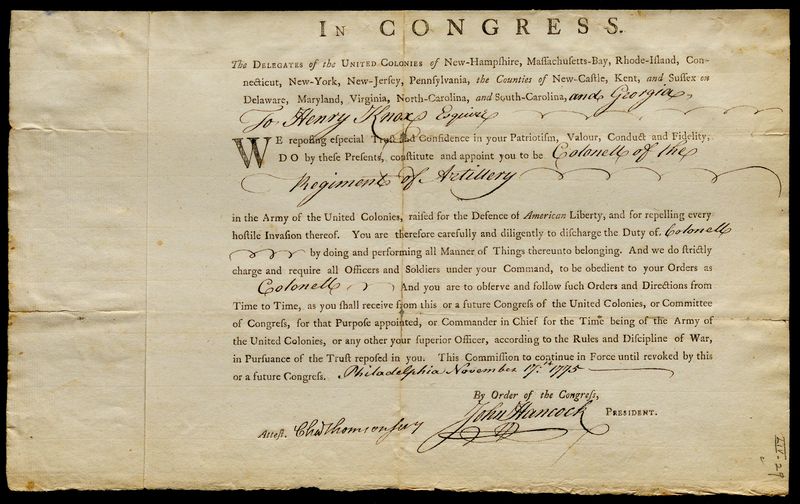 IN CONGRESS.
The DELEGATES of the UNITED COLONIES of New-Hampſhire, Maſſachuſetts-Bay, Rhode-Iſland, Con-
necticut, New-York, New-Jerſey, Pennſylvania, the Counties of New-Caſtle, Kent, and Suſſex on
Delaware, Maryland, Virginia, North-Carolina, and South-Carolina, and Georgia,
To Henry Knox Esquire
WE repoſing eſpecial Truſt and Confidence in your Patriotiſm, Valour, Conduct and Fidelity,
DO by theſe Preſents, conſtitute and appoint you to be Colonell of the
Regiment of Artillery
in the Army of the United Colonies, raiſed for the Defence of American Liberty, and for repelling every
hoſtile Invaſion thereof. You are therefore carefully and diligently to diſcharge the Duty of Colonell
by doing and performing all Manner of Things thereunto belonging. And we do ſtrictly
charge and require all Officers and Soldiers under your Command, to be obedient to your Orders as
Colonell And you are to obſerve and follow ſuch Orders and Directions from
Time to Time, as you ſhall receive from this or a future Congreſs of the United Colonies, or Committee
of Congreſs, for that Purpoſe appointed, or Commander in Chief for the Time being of the Army of
the United Colonies, or any other your ſuperior Officer, according to the Rules and Diſcipline of War,
in Purſuance of the Truſt repoſed in you. This Commiſſion to continue in Force until revoked by this
or a future Congreſs. Philadelphia November 17.st 1775
By Order of the Congreſs,
John Hancock PRESIDENT.
Atteſt. Chas Thomson secy
LIV-29